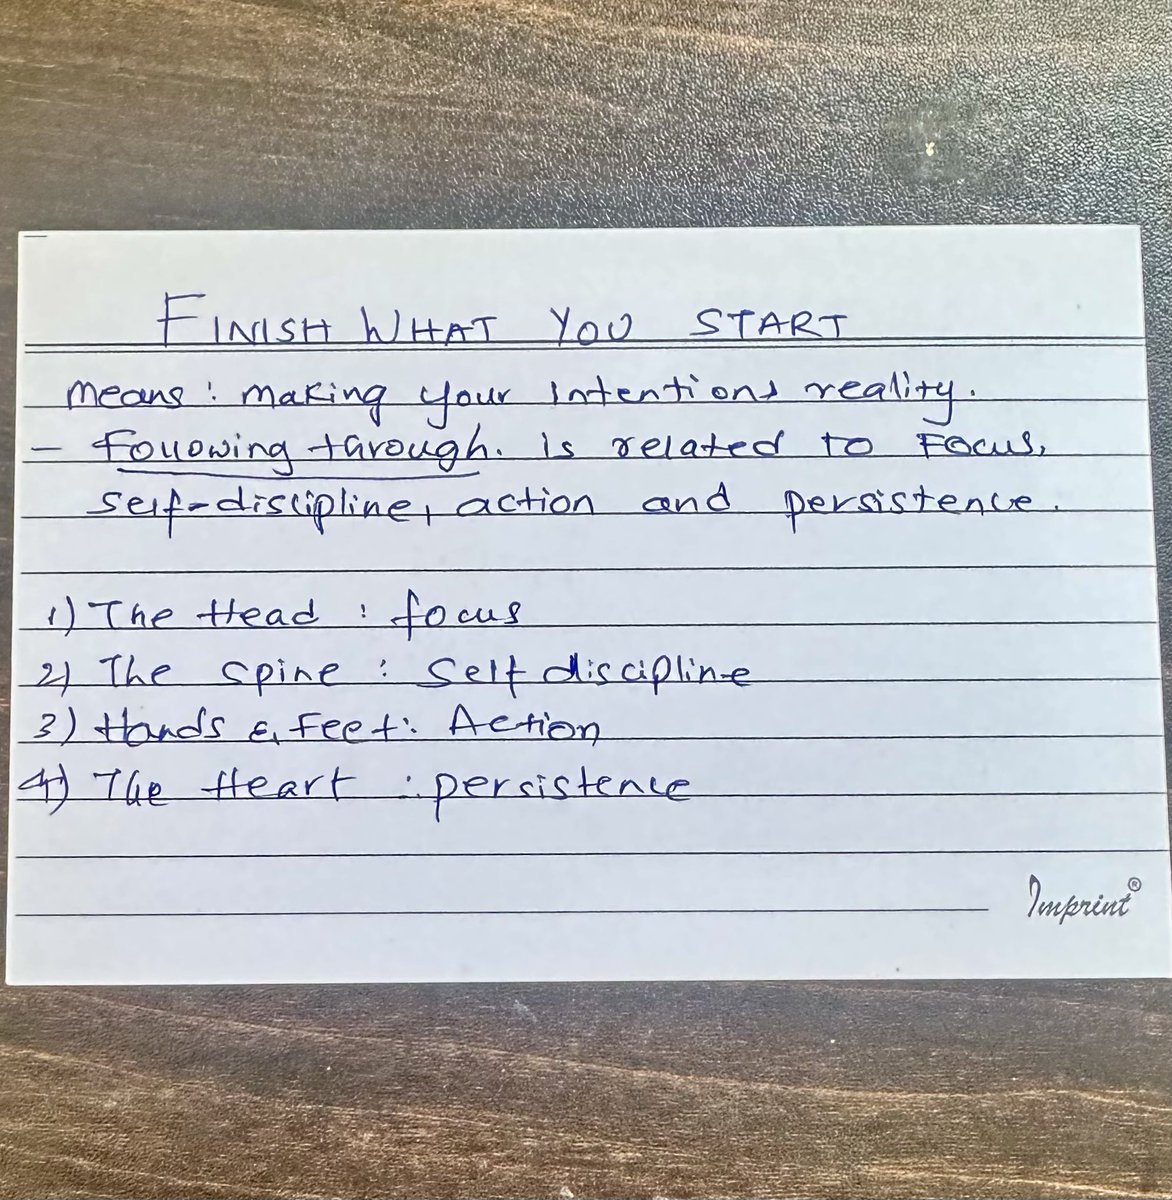 FINISH WHAT YOU START
Means : Making your intentions reality.
- Following through. Is related to Focus,
self-discipline, action and persistence.
1) The Head : focus
2) The spine : Self discipline
3) Hands & Feet : Action
4) The Heart : persistence
Imprint®